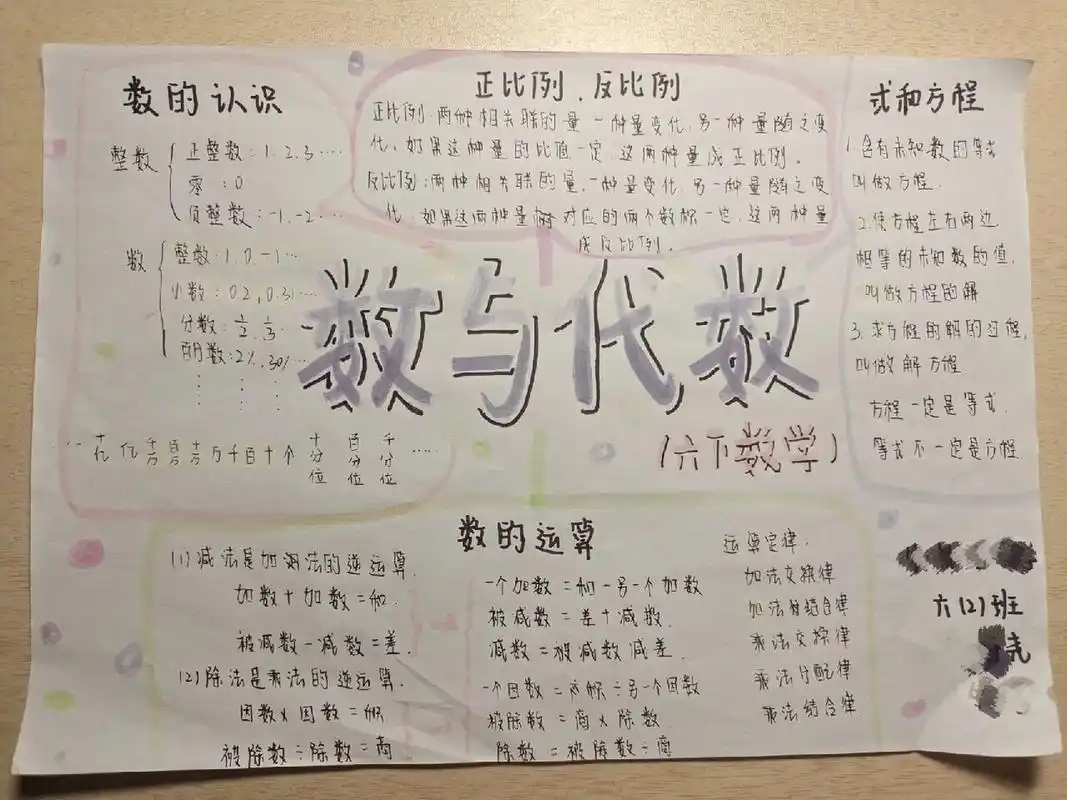 数的认识
整数
正整数：1.2.3……
零：0
负整数：-1.-2…
数
整数：1.0.-1…
小数：0.2，0.31…
分数：½.⅓…
百分数：2%.30%…
…十亿 亿 千万 百万 十万 万 千 百 十 个 十分位 百分位 千分位……
正比例、反比例
正比例：两种相关联的量，一种量变化，另一种量随之变
化。如果这种量的比值一定，这两种量成正比例。
反比例：两种相关联的量，一种量变化，另一种量随之变
化，如果这两种量对应的两个数积一定，这两种量
成反比例。
式和方程
1.含有未知数的等式
叫做方程.
2.使方程左右两边
相等的未知数的值,
叫做方程的解
3.求方程的解的过程,
叫做解方程
方程一定是等式.
等式不一定是方程.
数与代数
(六下数学)
数的运算
(1)减法是加法的逆运算.
加数+加数=和.
被减数-减数=差.
(2)除法是乘法的逆运算.
因数×因数=积
被除数÷除数=商
一个加数=和-另一个加数
被减数=差+减数.
减数=被减数减差.
一个因数=积÷另一个因数
被除数=商×除数
除数=被除数÷商
运算定律.
加法交换律
加法结合律
乘法交换律
乘法分配律
乘法结合律
六(2)班